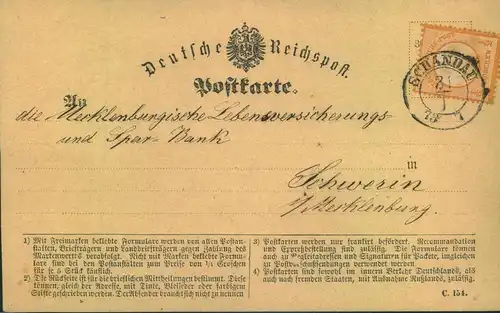 Deutsche Reichspost.
Postkarte.
SCHANDAU
An
die Mecklenburgische Lebensversicherungs-
und Spar-Bank
in
Schwerin
i/Mecklenburg.
1) Mit Freimarken beklebte Formulare werden von allen Postan-
stalten, Briefträgern und Landbriefträgern gegen Zahlung des
Markenwerts verabfolgt. Nicht mit Marken beklebte Formu-
lare sind bei den Postanstalten zum Preise von ½ Groschen
für je 5 Stück käuflich.
2) Die Rückseite ist für die brieflichen Mittheilungen bestimmt. Diese
können, gleich der Adresse, mit Tinte, Bleifeder oder farbigem
Stifte geschrieben werden. Der Absender braucht sich nicht zu nennen
3) Postkarten werden nur frankirt befördert. Recommandation
und Expreßbestellung sind zulässig. Die Formulare können
auch zu Begleitadressen und Signaturen für Packete, imgleichen
zu Postvorschußsendungen verwendet werden.
4) Postkarten sind sowohl im innern Verkehr Deutschlands, als
auch nach fremden Staaten, mit Ausnahme Rußlands, zulässig.
C. 154.